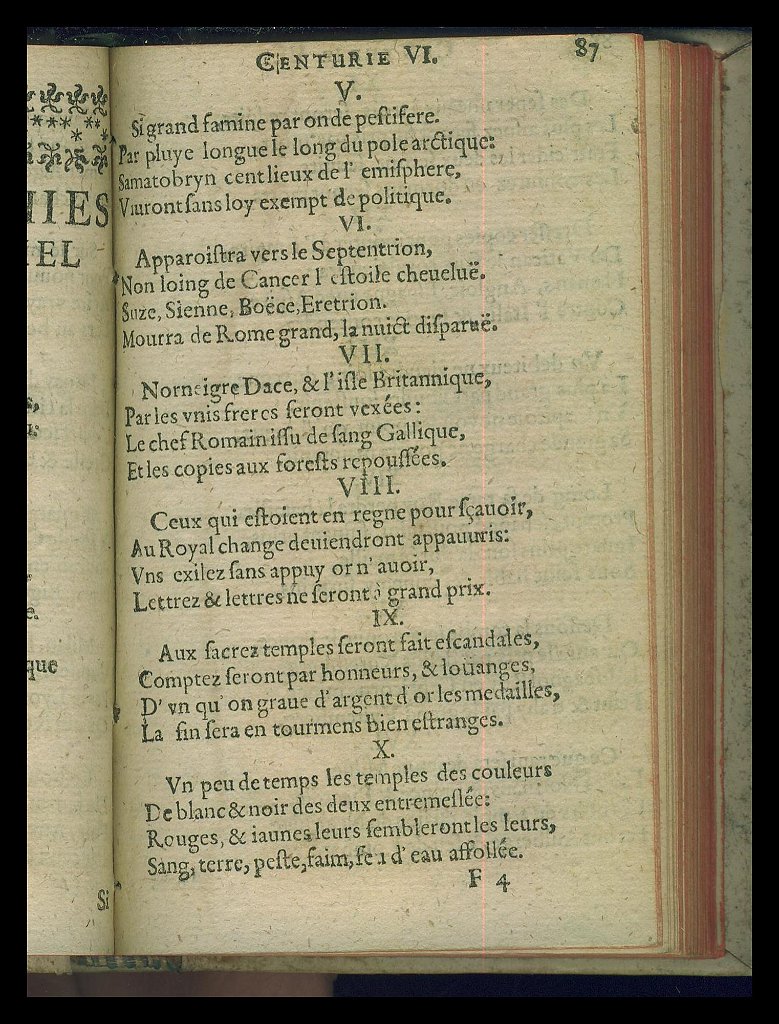 IIES
EL
que
Si
CENTURIE VI. 87
V.
Si grand famine par onde peſtifere.
Par pluye longue le long du pole arctique:
Samatobryn cent lieux de l' emiſphere,
Viuront ſans loy exempt de politique.
VI.
Apparoiſtra vers le Septentrion,
Non loing de Cancer l' eſtoile cheueluë.
Suze, Sienne, Boëce, Eretrion.
Mourra de Rome grand, la nuict diſparuë.
VII.
Norneigre Dace, & l'iſle Britannique,
Par les vnis freres ſeront vexées:
Le chef Romain iſſu de ſang Gallique,
Et les copies aux foreſts repouſſées.
VIII.
Ceux qui eſtoient en regne pour ſçauoir,
Au Royal change deuiendront appauuris:
Vns exilez ſans appuy or n' auoir,
Lettrez & lettres ne ſeront à grand prix.
IX.
Aux ſacrez temples ſeront fait eſcandales,
Comptez ſeront par honneurs, & louanges,
D' vn qu' on graue d'argent d'or les medailles,
La fin ſera en tourmens bien eſtranges.
X.
Vn peu de temps les temples des couleurs
De blanc & noir des deux entremeſlée:
Rouges, & iaunes leurs ſembleront les leurs,
Sang, terre, peſte, faim, feu d' eau affollée.
F 4